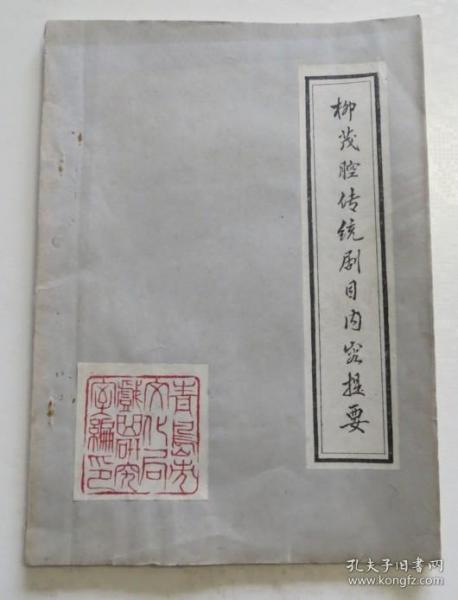 柳茂腔传统剧目内容提要
青岛市
文化局
戏曲研究
室编印
孔夫子旧书网
www.kongfz.com